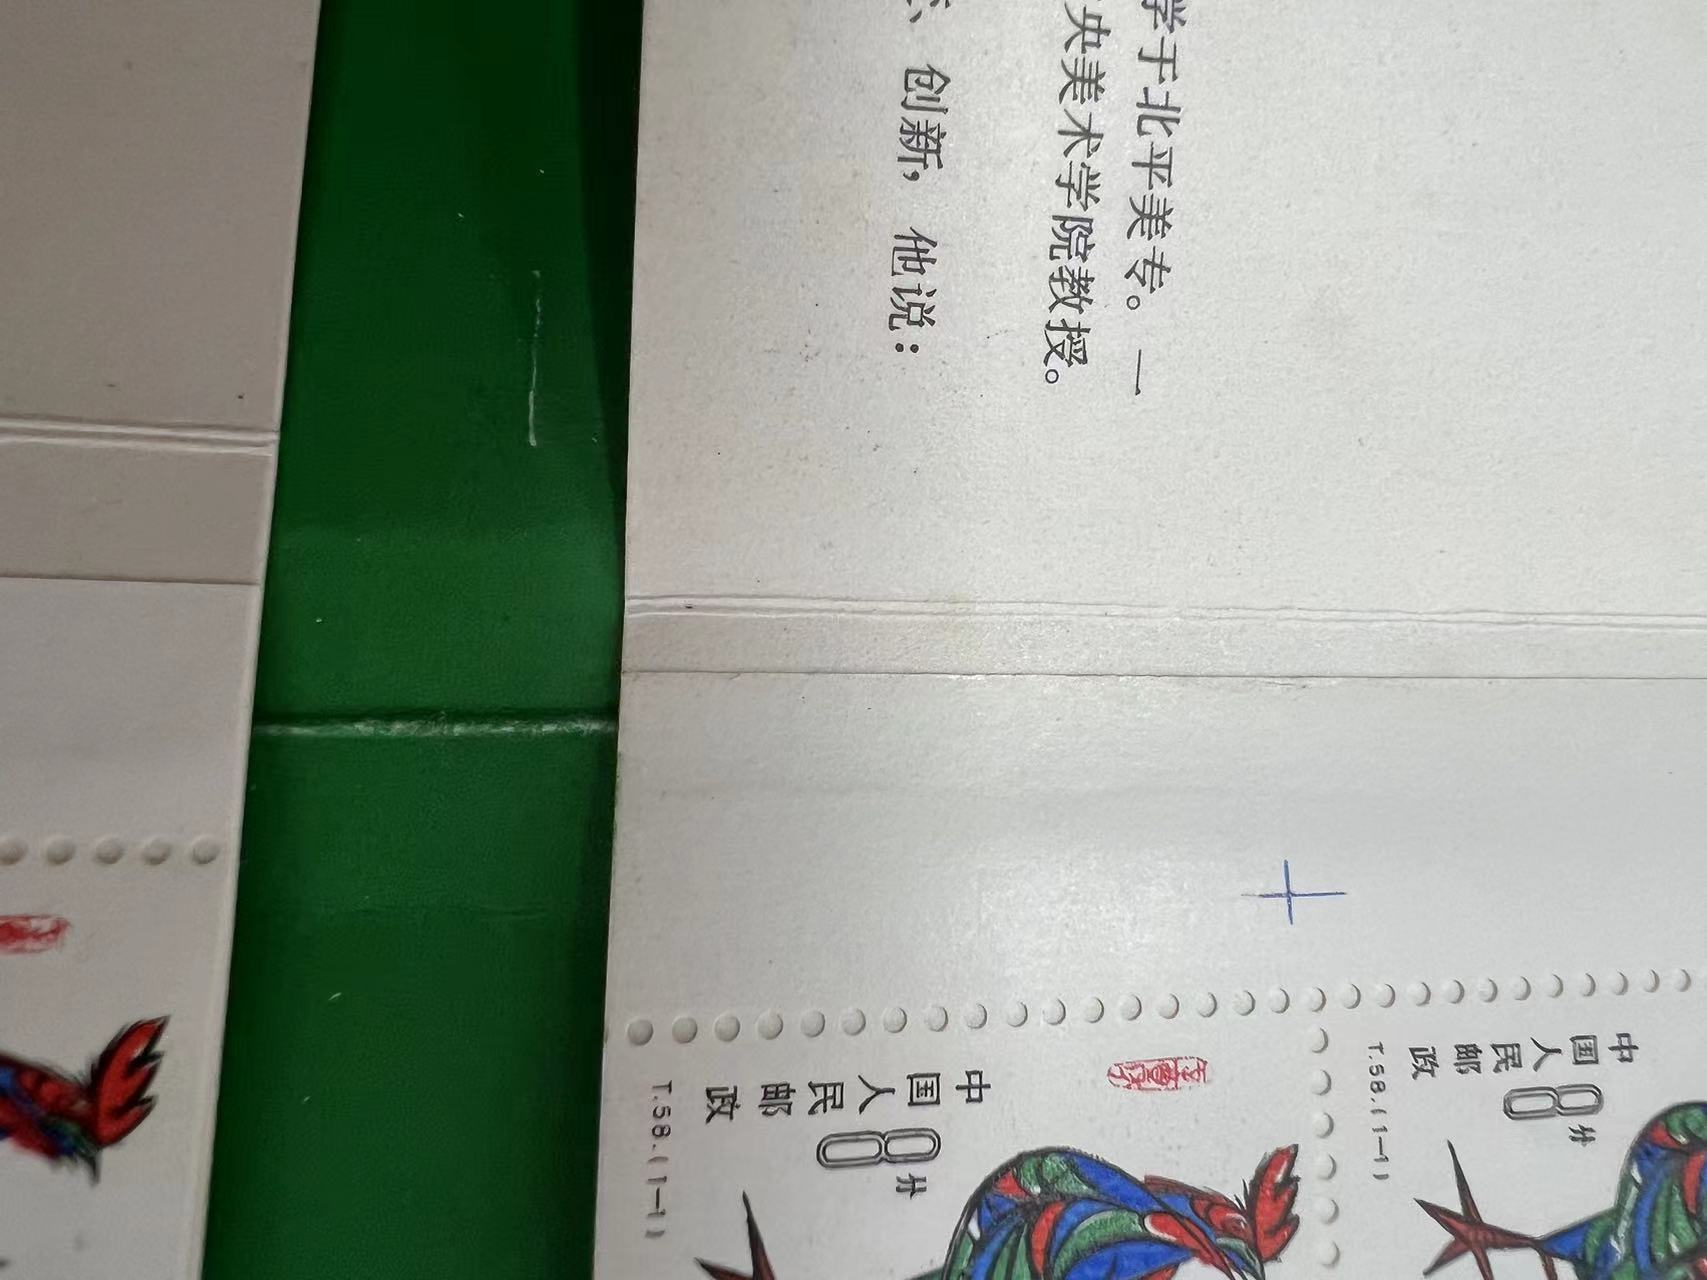 学于北平美专。一
央美术学院教授。
、创新，他说：
中国人民邮政
8分
T.58.(1-1)
中国人民邮政
8分
T.58.(1-1)